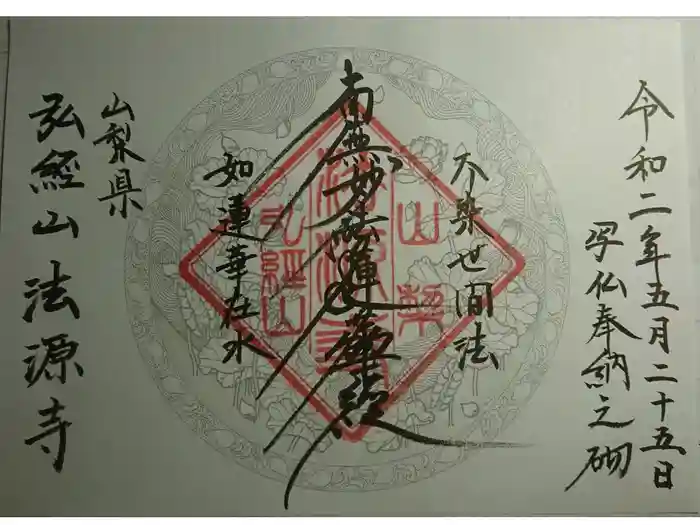 令和二年五月二十五日
写仏奉納之砌
不染世間法
南無妙法蓮華経
如蓮華在水
山梨県
弘経山法源寺
山梨
弘經山